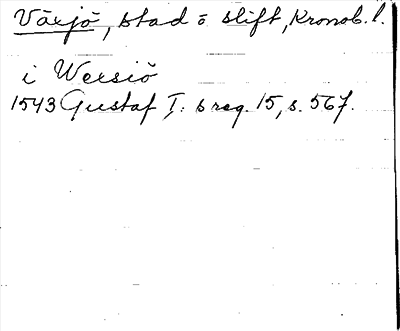 Växjö, stad o stift, Kronob. l.
i Wexsiö
1543 Gustaf I: s reg. 15, s. 567.